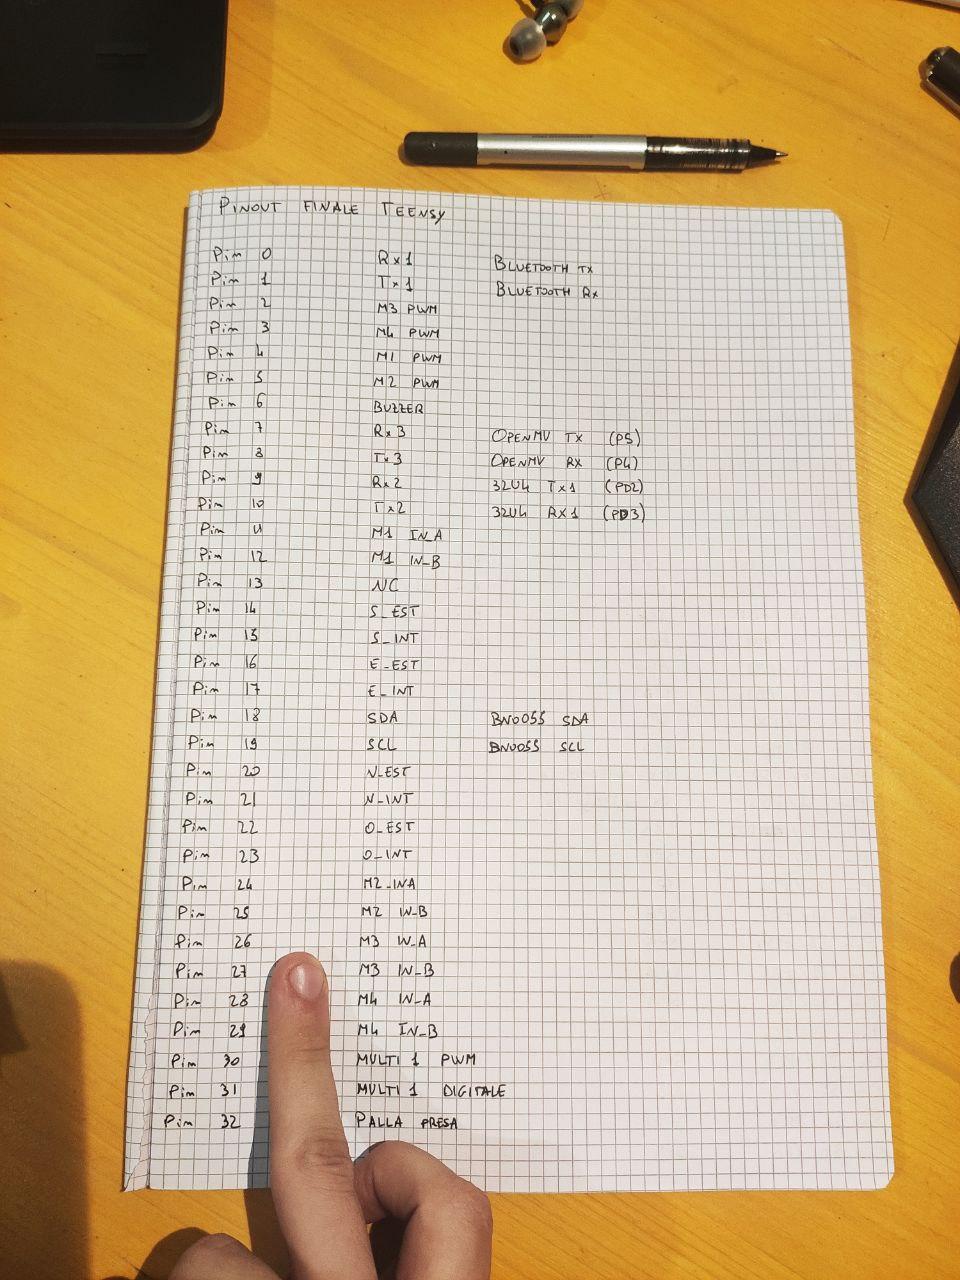 PINOUT FINALE TEENSY
Pin 0 Rx1 BLUETOOTH TX
Pin 1 Tx1 BLUETOOTH Rx
Pin 2 M3 PWM
Pin 3 M4 PWM
Pin 4 M1 PWM
Pin 5 M2 PWM
Pin 6 BUZZER
Pin 7 Rx3 OPENMV TX (P5)
Pin 8 Tx3 OPENMV RX (P4)
Pin 9 Rx2 32U4 Tx1 (PD2)
Pin 10 Tx2 32U4 RX1 (PD3)
Pin 11 M1 IN_A
Pin 12 M1 IN_B
Pin 13 NC
Pin 14 S_EST
Pin 15 S_INT
Pin 16 E_EST
Pin 17 E_INT
Pin 18 SDA BNO055 SDA
Pin 19 SCL BNO055 SCL
Pin 20 N_EST
Pin 21 N_INT
Pin 22 O_EST
Pin 23 O_INT
Pin 24 M2_INA
Pin 25 M2 IN_B
Pin 26 M3 IN_A
Pin 27 M3 IN_B
Pin 28 M4 IN_A
Pin 29 M4 IN_B
Pin 30 MULTI 1 PWM
Pin 31 MULTI 1 DIGITALE
Pin 32 PALLA PRESA